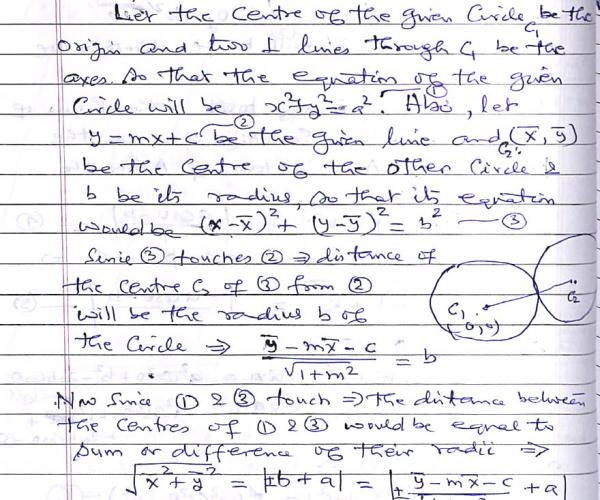 Let the centre of the given Circle C₁ be the
origin and two ⊥ lines through C₁ be the
axes. So that the equation of the given
Circle will be x²+y²=a². ① Also, let
y=mx+c ② be the given line and (x̄, ȳ)
be the centre C₂ of the other Circle &
b be its radius, so that its equation
would be (x-x̄)² + (y-ȳ)² = b² — ③
Since ③ touches ② ⇒ distance of
the centre C₂ of ③ from ②
will be the radius b of
the Circle ⇒ (ȳ - mx̄ - c)/√(1+m²) = b
C₁ (0,0)
C₂
Now Since ① & ③ touch ⇒ the distance between
the centres of ① & ③ would be equal to
sum or difference of their radii ⇒
√(x̄² + ȳ²) = |±b + a| = |± ȳ - mx̄ - c + a|